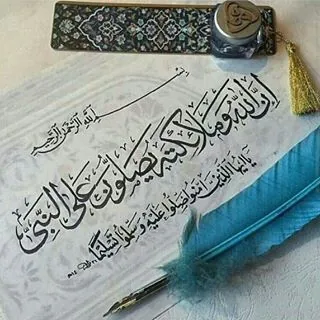 بسم الله الرحمن الرحيم
ان الله وملائكته يصلون على النبي
يا ايها الذين امنوا صلوا عليه وسلموا تسليما